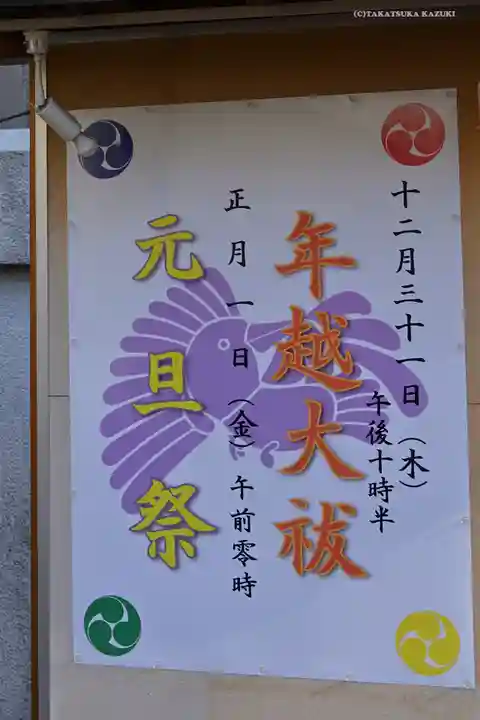 (C)TAKATSUKA KAZUKI
十二月三十一日（木）
午後十時半
年越大祓
正月一日（金）午前零時
元旦祭